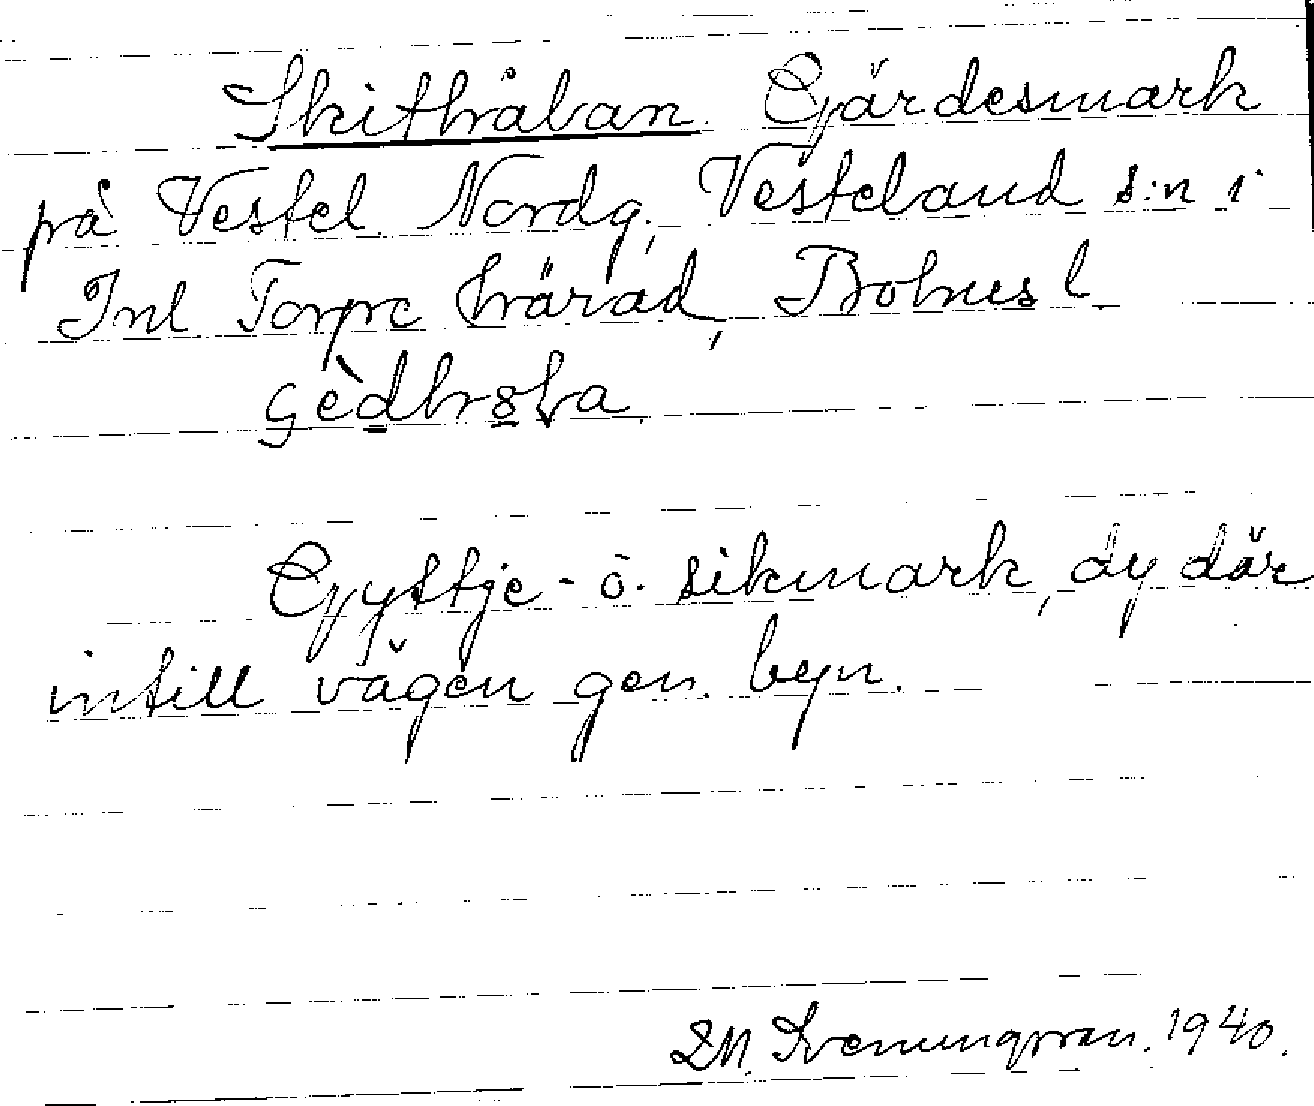 Skithålan. Gärdesmark
på Vestel Nordg., Vesteland s:n i
Inl Torpe härad, Bohus l.
Gyttje- o. sikmark, dy där
intill vägen gen. byn.
1940.